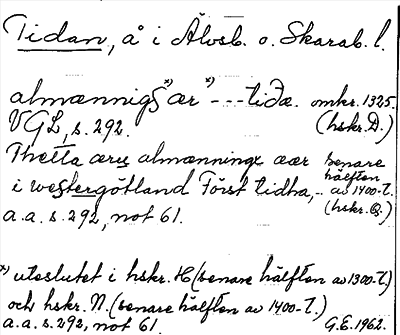 Tidan, å i Älvsb. o. Skarab. l.
almænnigs*) ær*) --- tiðæ. omkr. 1325.
VGL, s. 292. (hskr. D.)
Thetta æru almænninge aar senare
i westergötland Först tidha, .. hälften av 1400-t.
a.a. s. 292, not 61. (hskr. Q.)
*) uteslutet i hskr. H (senare hälften av 1300-t.)
och hskr. N. (senare hälften av 1400-t.)
a.a. s. 292, not 61. G.E. 1962.